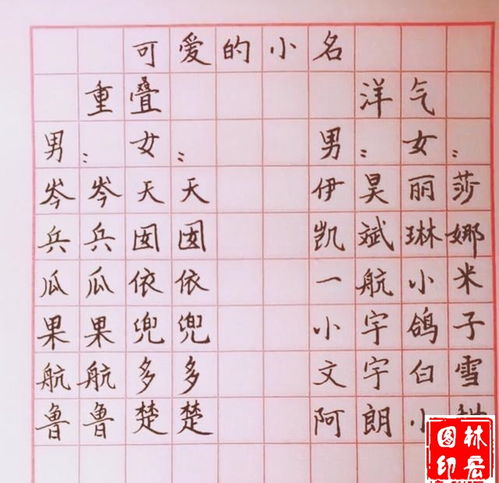 可爱的小名
重叠 洋气
男：女： 男：女：
岑岑天天 伊昊丽莎
兵兵囡囡 凯斌琳娜
瓜瓜依依 一航小米
果果兜兜 小宇鸽子
航航多多 文宇白雪
鲁鲁楚楚 阿朗小